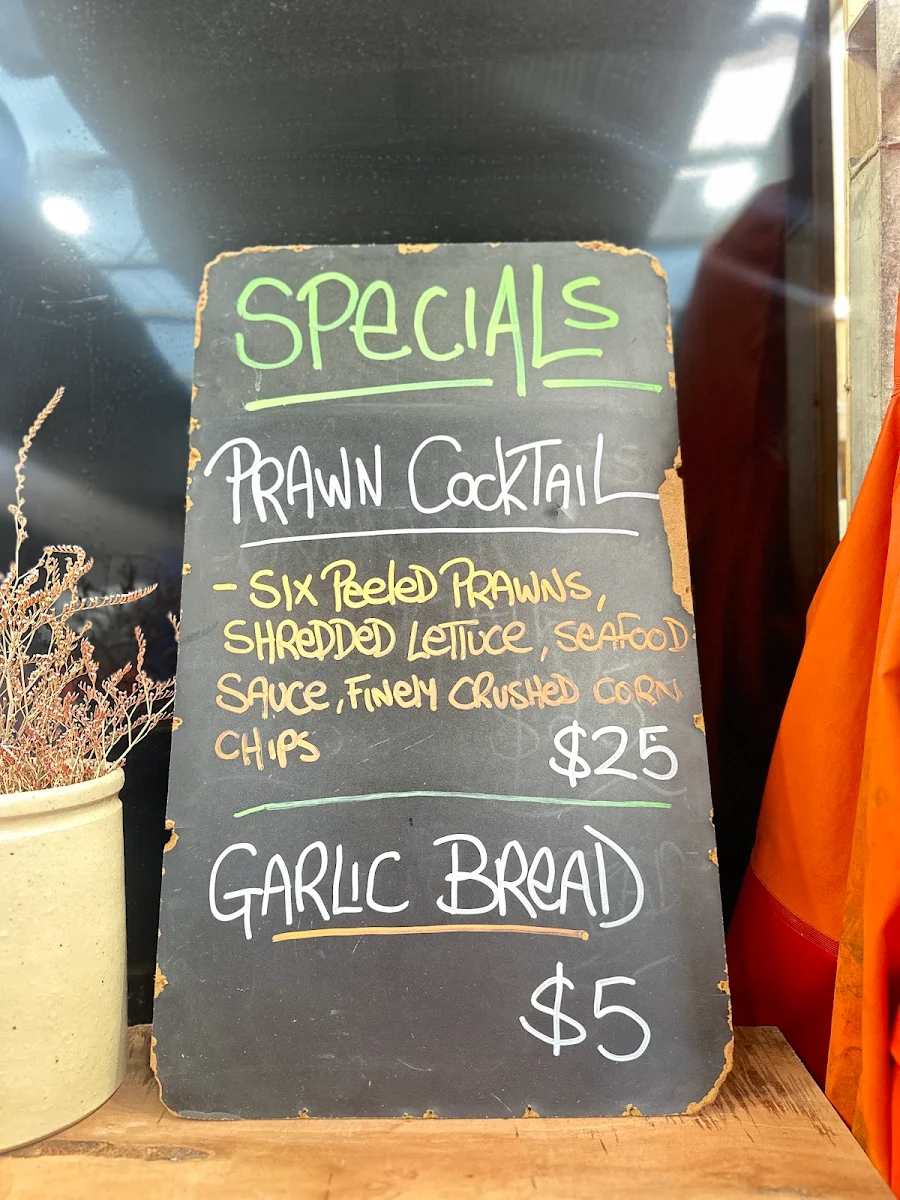 SPeCIALS
PRAWN CocKTAIL
- SIX PeeleD PRAWNS,
SHReDDeD LeTTuce, SeAFOOD
SAUce, FINely CRUSHeD CORN
CHIPS
$25
GARLIC BReAD
$5